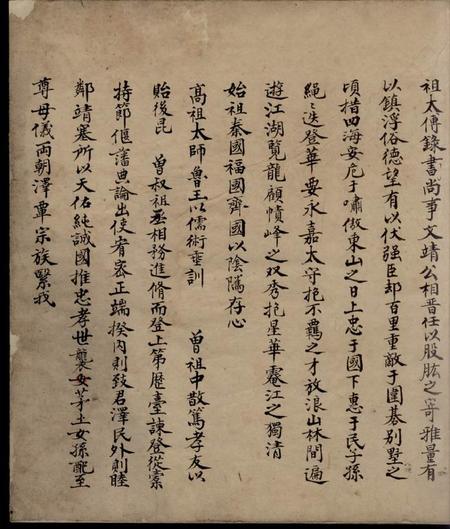 祖太傳錄書尚事文靖公相晉任以股肱之寄雅量有
以鎮浮俗德望有以伏强臣却百里重敵于圍碁別墅之
頃措四海安危于嘯傲東山之日上忠于國下惠于民子孫
繩〻迭登華要永嘉太守抱不羈之才放浪山林間遍
遊江湖覽龍顧幘峰之双秀挹星華靈江之獨清
始祖秦國福國齊國以陰隲存心
髙祖太師魯王以儒術垂訓　曾祖中散篤孝友以
貽後昆　曽叔祖丞相務進脩而登上第歷臺諫登從橐
持節偃藩典論出使宥密正端揆内則致君澤民外則睦
鄰靖塞所以天佑純誠國推忠孝世襲茅土女孫配至
尊母儀两朝澤覃宗族繄我